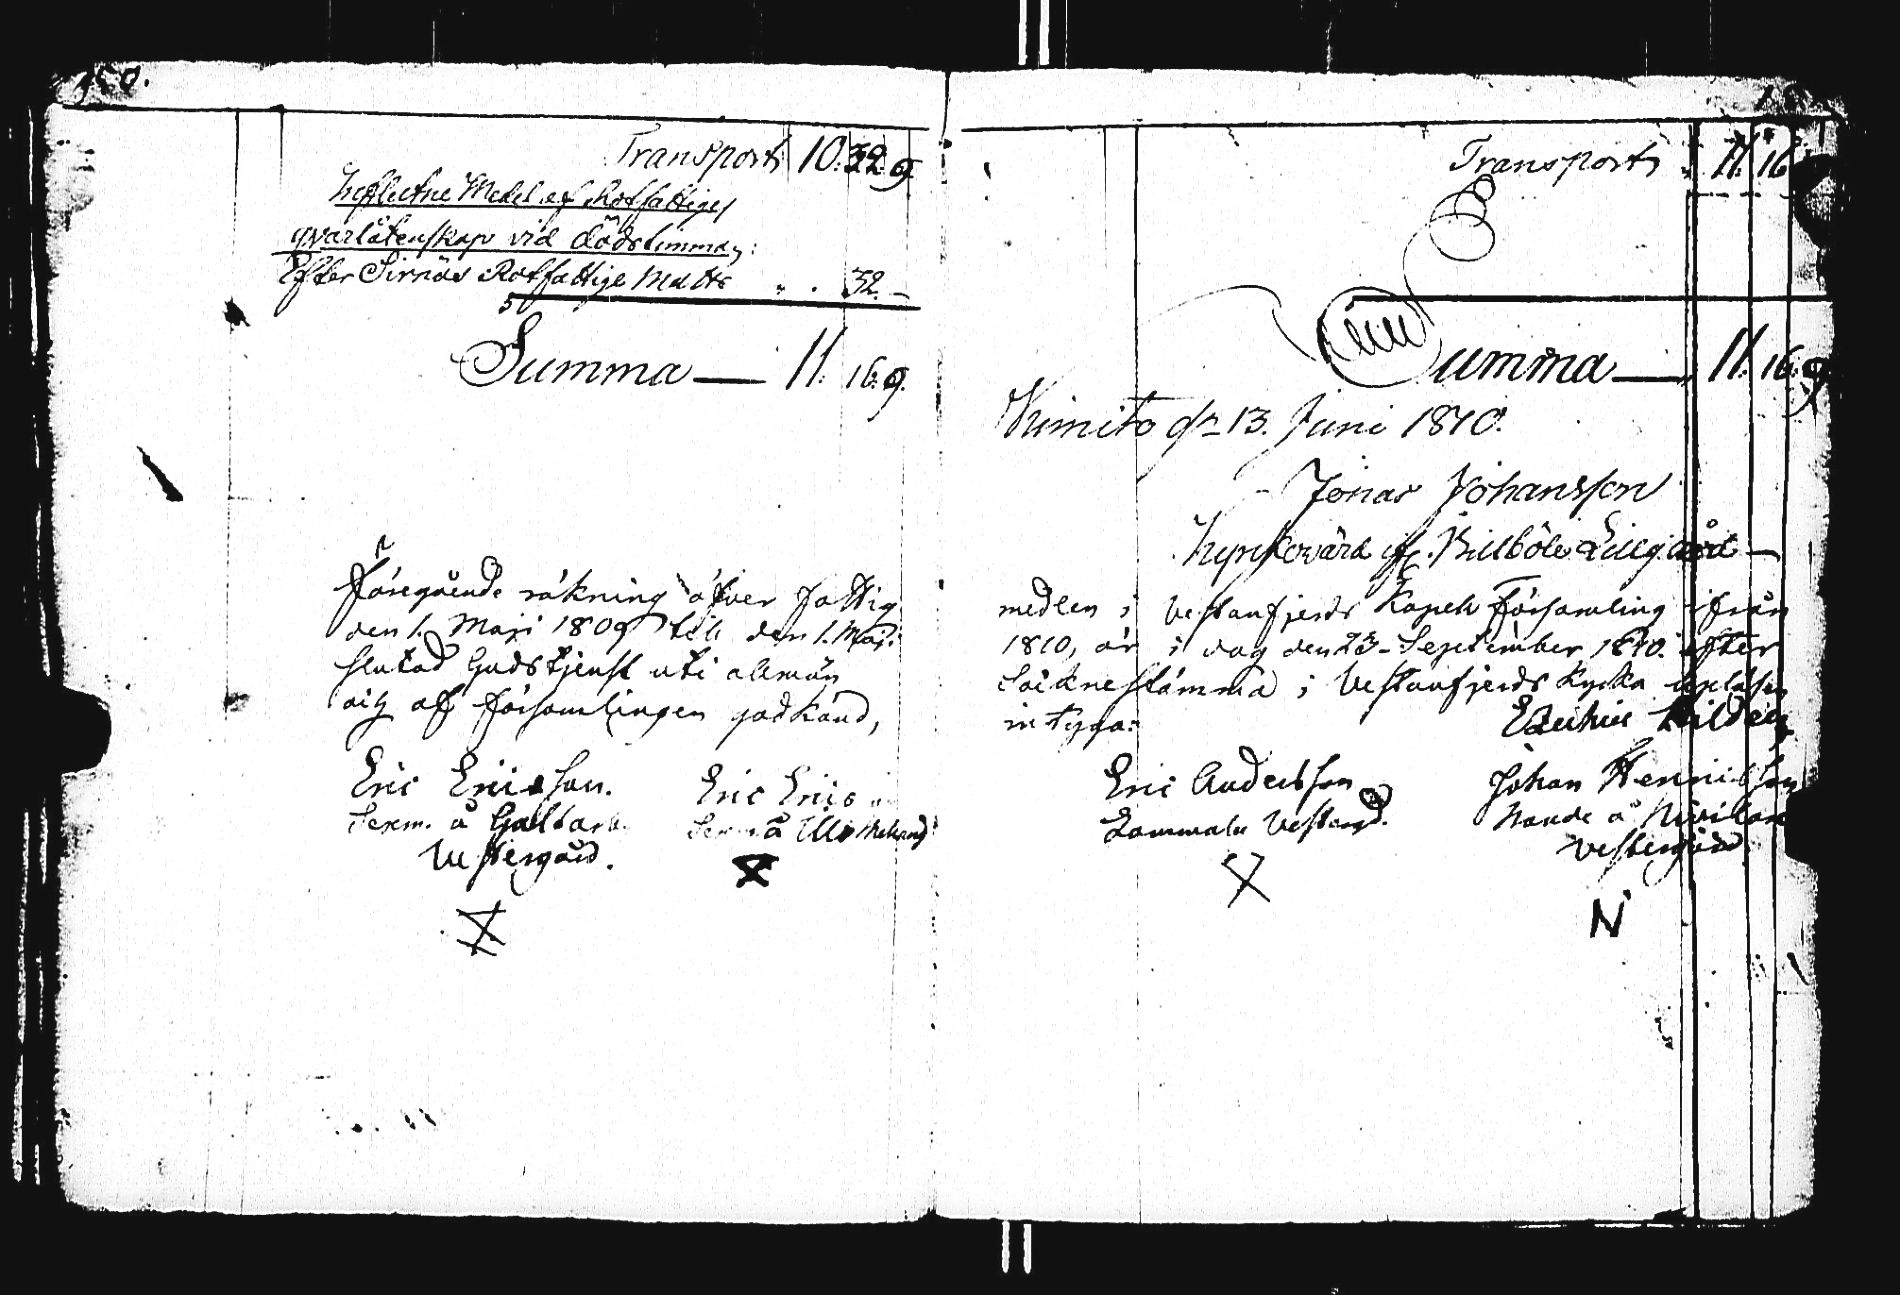 150.
Transport 10. 32. 9.
Influtne Medel af Rotfattiges
qvarlåtenskap vid dödstimman:
Efter Sirnäs Rotfattige Matts " . 32. –
Summa — 11. 16. 9.
Föregående räkning öfver fattig
den 1. Maji 1809 till den 1. Maji
slutad Gudstjenst uti allmän
och af församlingen godkänd,
Eric Ericsson.
Sexm. å Galtarb.
Vestergård.
Eric Erics
Sexm å
Transport " 11. 16
Summa — " 11. 16. 9
Kimito dn 13. Juni 1810.
Jonas Johansson
Kyrkovärd Billböle Lillgård —
medlen i Vestanfjerds Kapell Församling ifrån
1810, är i dag den 23 September 1810. efter
Socknestämma i Vestanfjerds Kyrka uppläsen
intyga:
Eric Andersson
Lammala Vestergd.
Johan Henricsson
å Nivilax
Vestergård
N